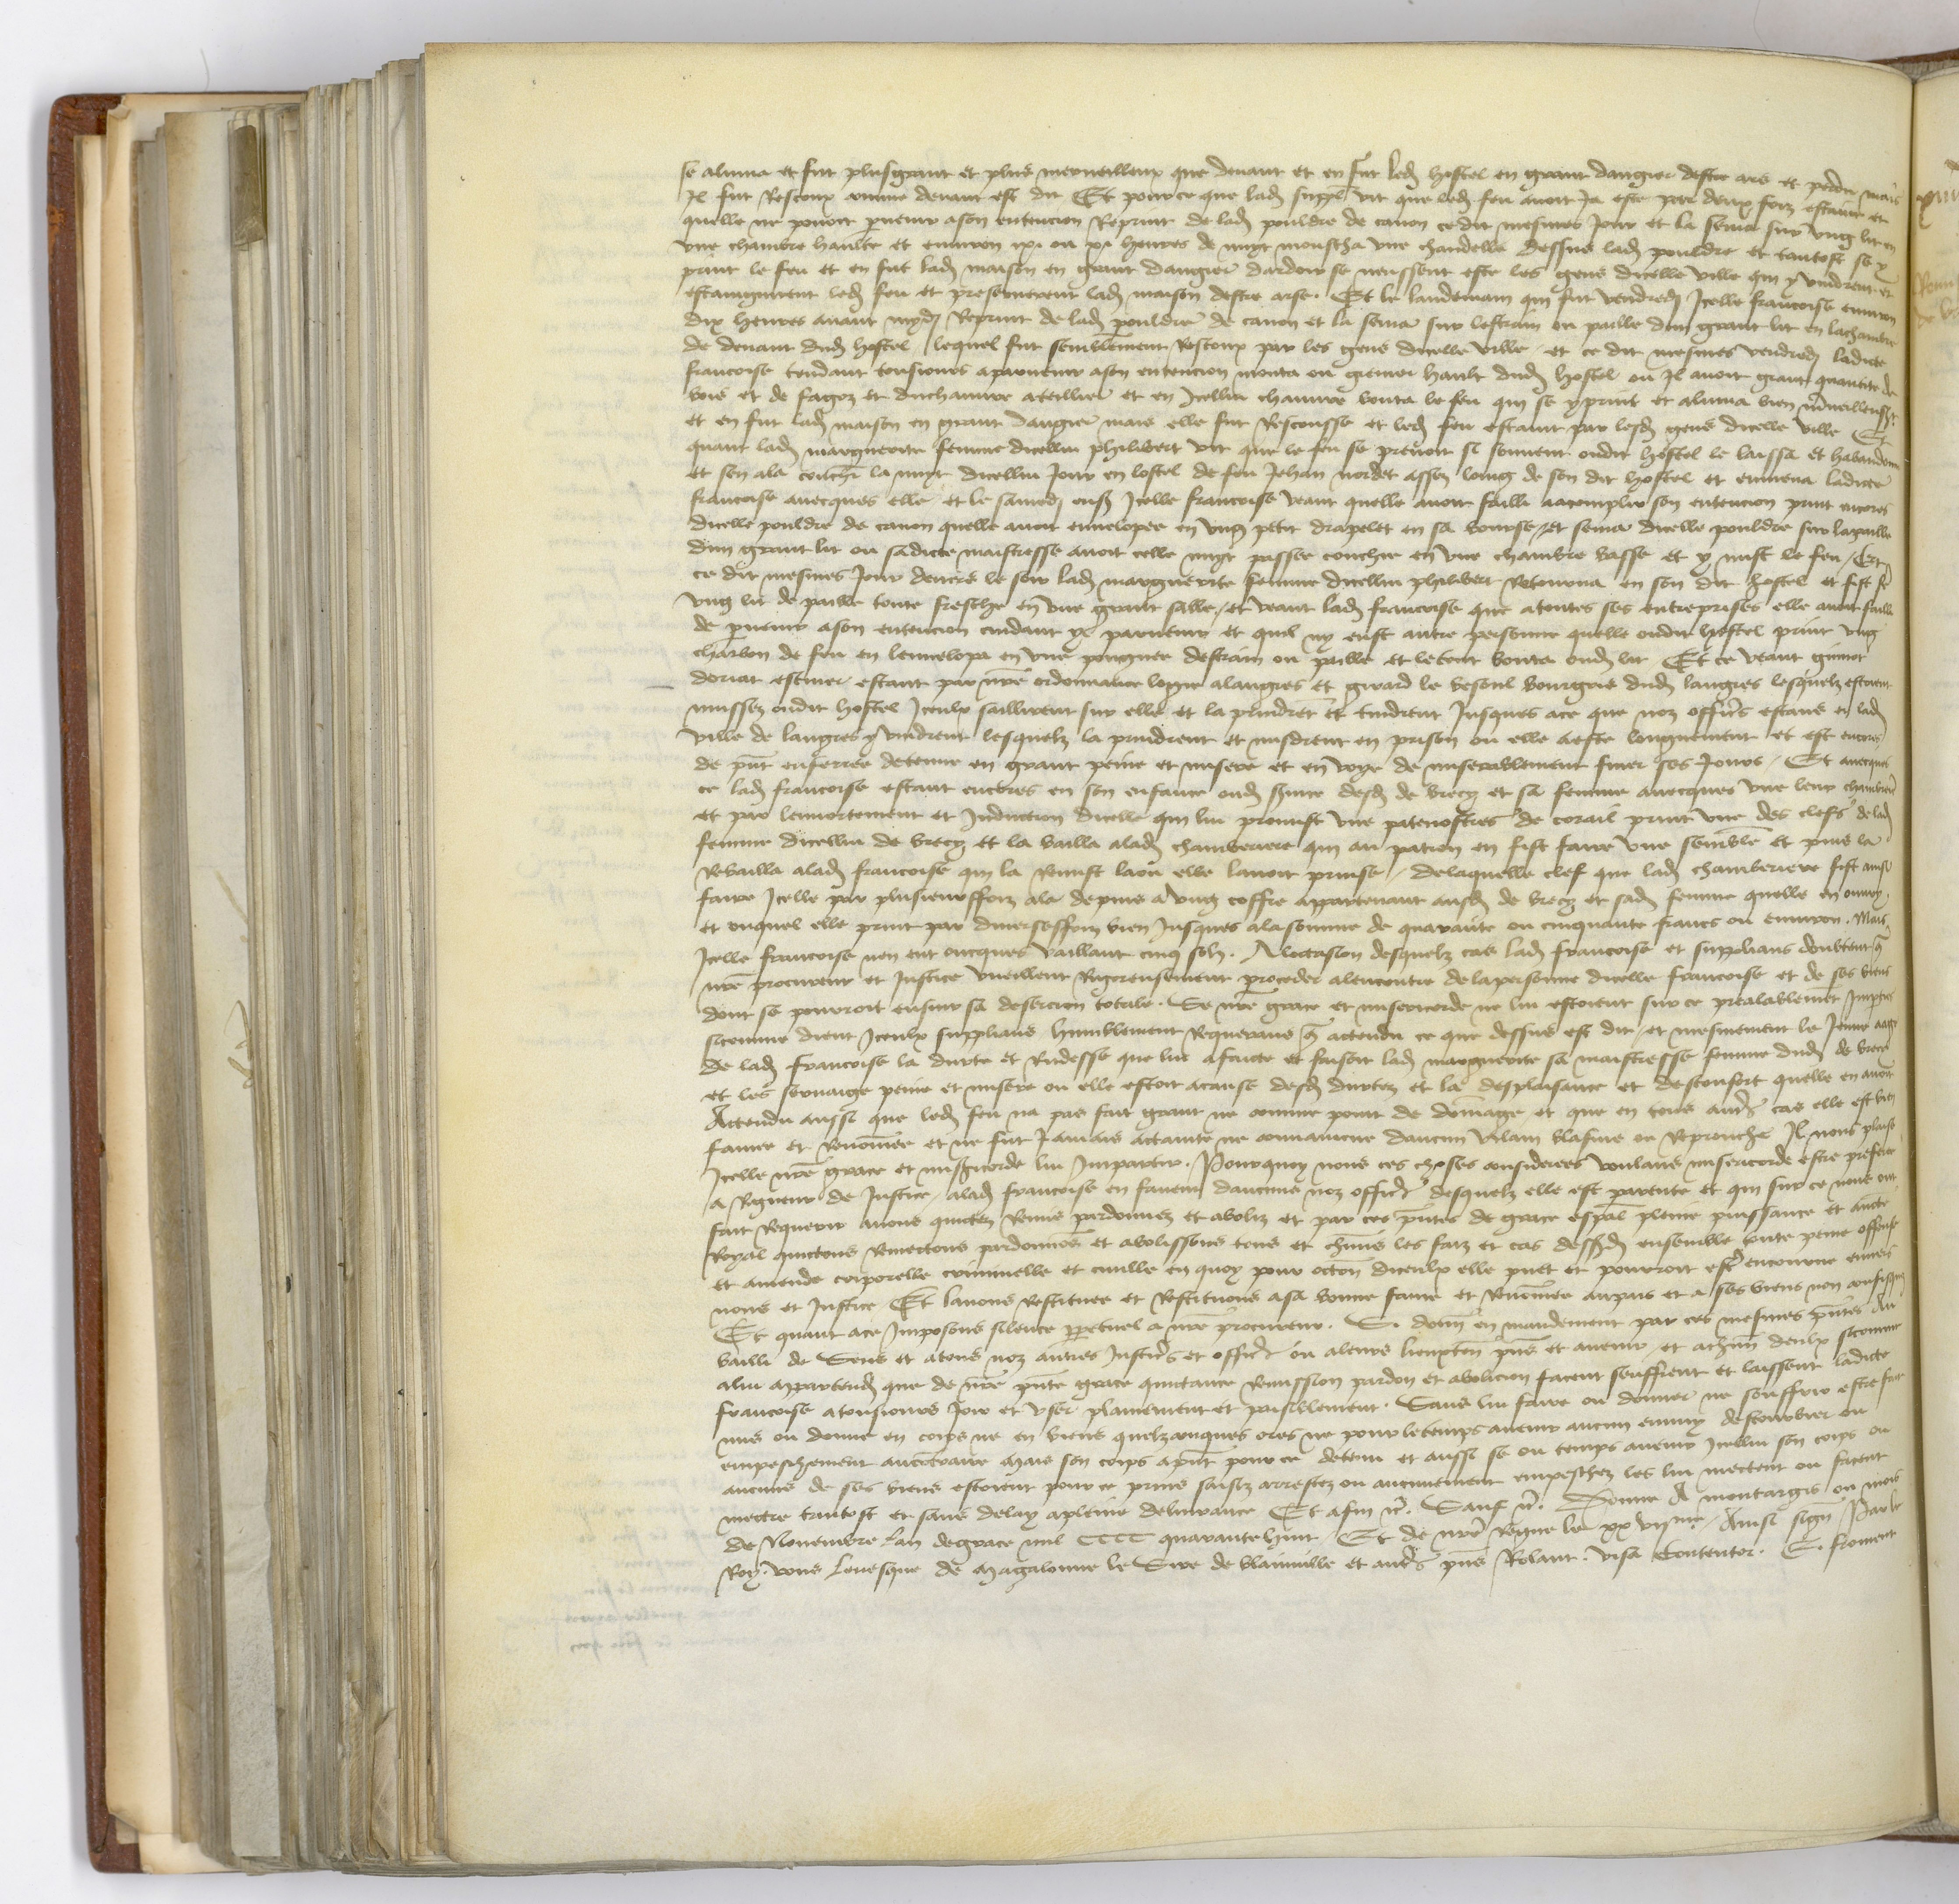 se aluma et fut plusgrant et plus merveilleux que devant et en fut led hostel en grant dangier destre ars et perdu mais
Il fut Rescoux comme devant est dit Et pource que lad suppl vit que led feu avoit Ja este par deux foiz estaint et
quelle ne povoit pvenir ason entencion Reprint de lad pouldre de canon cedit mesmes Jour et la sema sur ung lit en
une chambre haulte et environ ix ou x heures de nuyt moucha une chandelle dessus lad pouldre et tantost se y
print le feu et en fut lad maison en grant dangier dardoir se neussent este les gens dicelle ville qui y vindrent et
estaingnirent led feu et preserverent lad maison destre arse. Et le landemain qui fut vendredi Icelle francoise environ
dix heures avant mydi Reprint de lad pouldre de canon et la sema sur lestrain ou paille dun grant lit en lachambre
de devant dud hostel lequel fut semblement Rescoux par les gens dicelle ville et ce dit mesmes vendredi ladicte
francoise tendant tousiours aparvenir ason entencion monta ou grenier hault dud hostel ou Il avoit grant quantite de
bois et de fagoz et duchanvre atillier et en Icellui chanvre bouta le feu qui se yprint et aluma bien merveilleusemt
et en fut lad maison en grant dangier mais elle fut Rescousse et led feu estaint par lesd gens dicelle ville Et
quant lad marguerite femme dicellui philibert vit que le feu se prenoit si souvent oudit hostel le laissa et habandonna
et sen ala couchr la nuyt dicellui Jour en lostel de feu Jehan nordet assez loing de son dit hostel et enmena ladicte
francoise avecques elle et le samedi ensi Icelle francoise veant quelle avoit failli aacomplir son entencion print encores
dicelle pouldre de canon quelle avoit envelopee en ung petit drapelet en sa bourse et sema dicelle pouldre sur lapaille
dun grant lit ou sadicte maistresse avoit celle nuyt passee couchie en une chambre basse et y mist le feu / Et
ce dit mesmes Jour devers le soir lad marguerite femme dicellui philibert Retourna en son dit hostel et fist fe
ung lit de paille toute fresche en une grant salle / et veant lad francoise que atoutes ses entreprises elle avoit failli
de pvenir ason entencion cuidant y parvenir et quil ny eust autre personne quelle oudit hostel print ung
charbon de feu en lenvelopa en une pongnee destrain ou paille et letout bouta oud lit Et ce veant
doriat escuier estant par nre ordonnance logie alangres et girard le vesoul bourgois dud langres lesquelz estoient
mussez oudit hostel Iceulx saillirent sur elle et la prindret et tindrent Jusques ace que noz officiers estans en lad
ville de langres y vindrent lesquelz la prindrent et misdrent en prison ou elle aeste longuement et est encores
de pnt enferree detenue en grant peine et misere et en voye de miserablement finer ses Jours / Et avecques
ce lad francoise estant encores en son enfance oud service desd de brecy et sa femme avecques une leur chambriere
et par lennortement et Induction dicelle qui lui promist une patenostres de corail print une des clefs de lad
femme dicellui de brecy et la bailla alad chamberiere qui au patron en fist faire une semble et puis la
Rebailla alad francoise qui la Remist laou elle lavoit prinse / delaquelle clef que lad chamberiere fist ainsi
faire Icelle par plusieursfoiz ala depuis a ung coffre appartenant ausd de brecy et sad femme quelle en ouvry
et ouquel elle print par diversesfoiz bien Jusques alasomme de quarante ou cinquante francs ou environ. Mais
Icelle francoise nen eut oncques vaillant cinq solz. A loccasion desquelz cas lad francoise et supplians doubtent q
nre procureur et Justice vueillent Rigoreusement proceder alencontre delapersonne dicelle francoise et de ses biens
dont se pourroit ensuir sa desercion totale. Se nre grace et misericorde ne lui estoient sur ce prealablemet Imptis
sicomme dient Iceulx supplians humblement Requerans q actendu ce que dessus est dit et mesmement le Jeune aage
de lad francoise la durte et Rudesse que lui afaicte et faisoit lad marguerite sa maistresse femme dud de brecy
et les servaige peine et misere ou elle estoit acause desd durtez et la desplaisance et desconfort quelle en avoit
Actendu aussi que led feu na pas fait grant ne comme point de dommage et que en tous autrs cas elle est bien
famee et Renommee et ne fut Jamais actainte ne convaincue daucun vilain blasme ou Reprouche Il nous plaise
Icelle nre grace et misicorde lui Impartir. Pourquoy nous ces choses considerees voulans misericorde estre preferee
a Rigueur de Justice / alad francoise en faveur daucuns noz officrs desquelz elle est parente et qui sur ce nous ont
fait Requerir avons quictez Remis pardonnez et aboliz et par ces pntes de grace espal pleine puissance et aucte
Royal quictons Remectons pardonnons et abolissons tous et chuns les faiz et cas dessusd ensemble toute peine offense
et amende corporelle criminelle et civille en quoy pour occon diceulx elle puet et pourroit estr encourue envers
nous et Justice Et lavons Restituee et Restituons asa bonne fame et Renommee aupais et a ses biens non confisquez
Et quant ace Imposons silence ppetuel a nre procureur. Si donn en mandement par ces mesmes pntes Au
bailli de Sens et atous noz autres Justicrs et officrs ou aleurs lieuxten pns et avenir et achun deulx sicomme
alui appartendr que de nre pnte grace quictance Remission pardon et abolicion facent seuffrent et laissent ladicte
francoise atousiours Joir et user plainement et paisiblement. Sans lui faire ou donner ne souffrir estre fait
mis ou donne en corps ne en biens quelzconques ores ne pour letemps avenir aucun ennuy destourbier ou
empeschement aucontraire Mais son corps apnt pour ce detenu et aussi se ou temps avenir Icellui son corps ou
aucuns de ses biens estoient pource prins saisiz arrestez ou aucunement empeschez les lui mectent ou facent
mectre tantost et sans delay apleine delivrance Et afin &c. Sauf &c. Donne A montargis ou mois
de Novembre lan degrace mil CCCC quarantehuit Et de nre Regne le xxvisme / Ainsi sign Par le
Roy. vous levesque de Magalonne le Sire de blainville et autrs pns Rolant. visa Contentor. E. froment